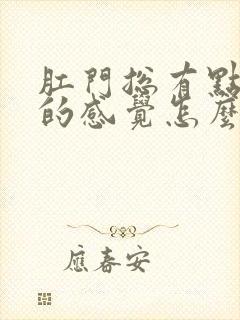 肛門總有點
的感覺怎麼
應春安